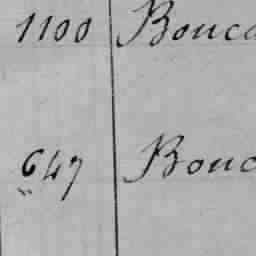 1100 Bouca
647 Bouc